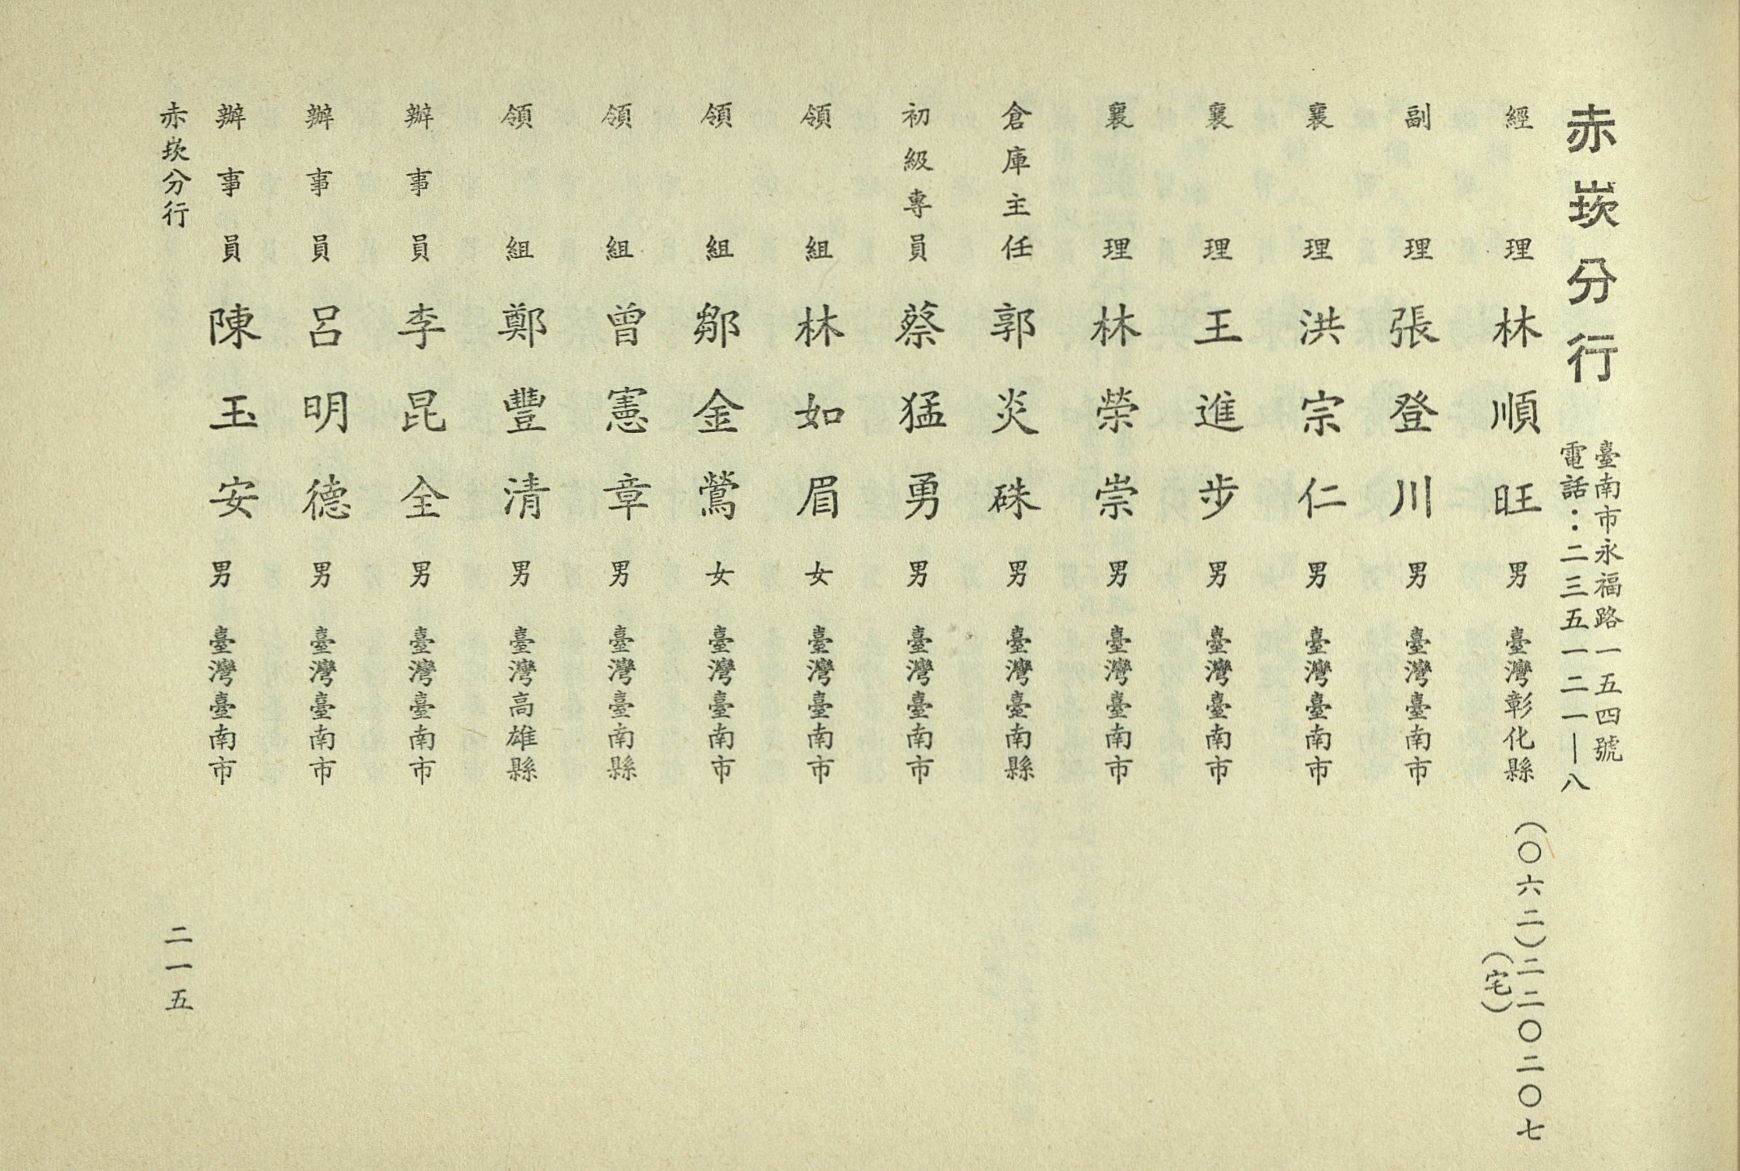 赤崁分行
臺南市永福路一五四號
電話：二三五一二一—八
經理 林順旺 男 臺灣彰化縣 （〇六二）二二〇二〇七
（宅）
副理 張登川 男 臺灣臺南市
襄理 洪宗仁 男 臺灣臺南市
襄理 王進步 男 臺灣臺南市
襄理 林榮崇 男 臺灣臺南市
倉庫主任 郭炎硃 男 臺灣臺南縣
初級專員 蔡猛勇 男 臺灣臺南市
領組 林如眉 女 臺灣臺南市
領組 鄒金鶯 女 臺灣臺南市
領組 曾憲章 男 臺灣臺南縣
領組 鄭豐清 男 臺灣高雄縣
辦事員 李昆全 男 臺灣臺南市
辦事員 呂明德 男 臺灣臺南市
辦事員 陳玉安 男 臺灣臺南市
赤崁分行
二一五